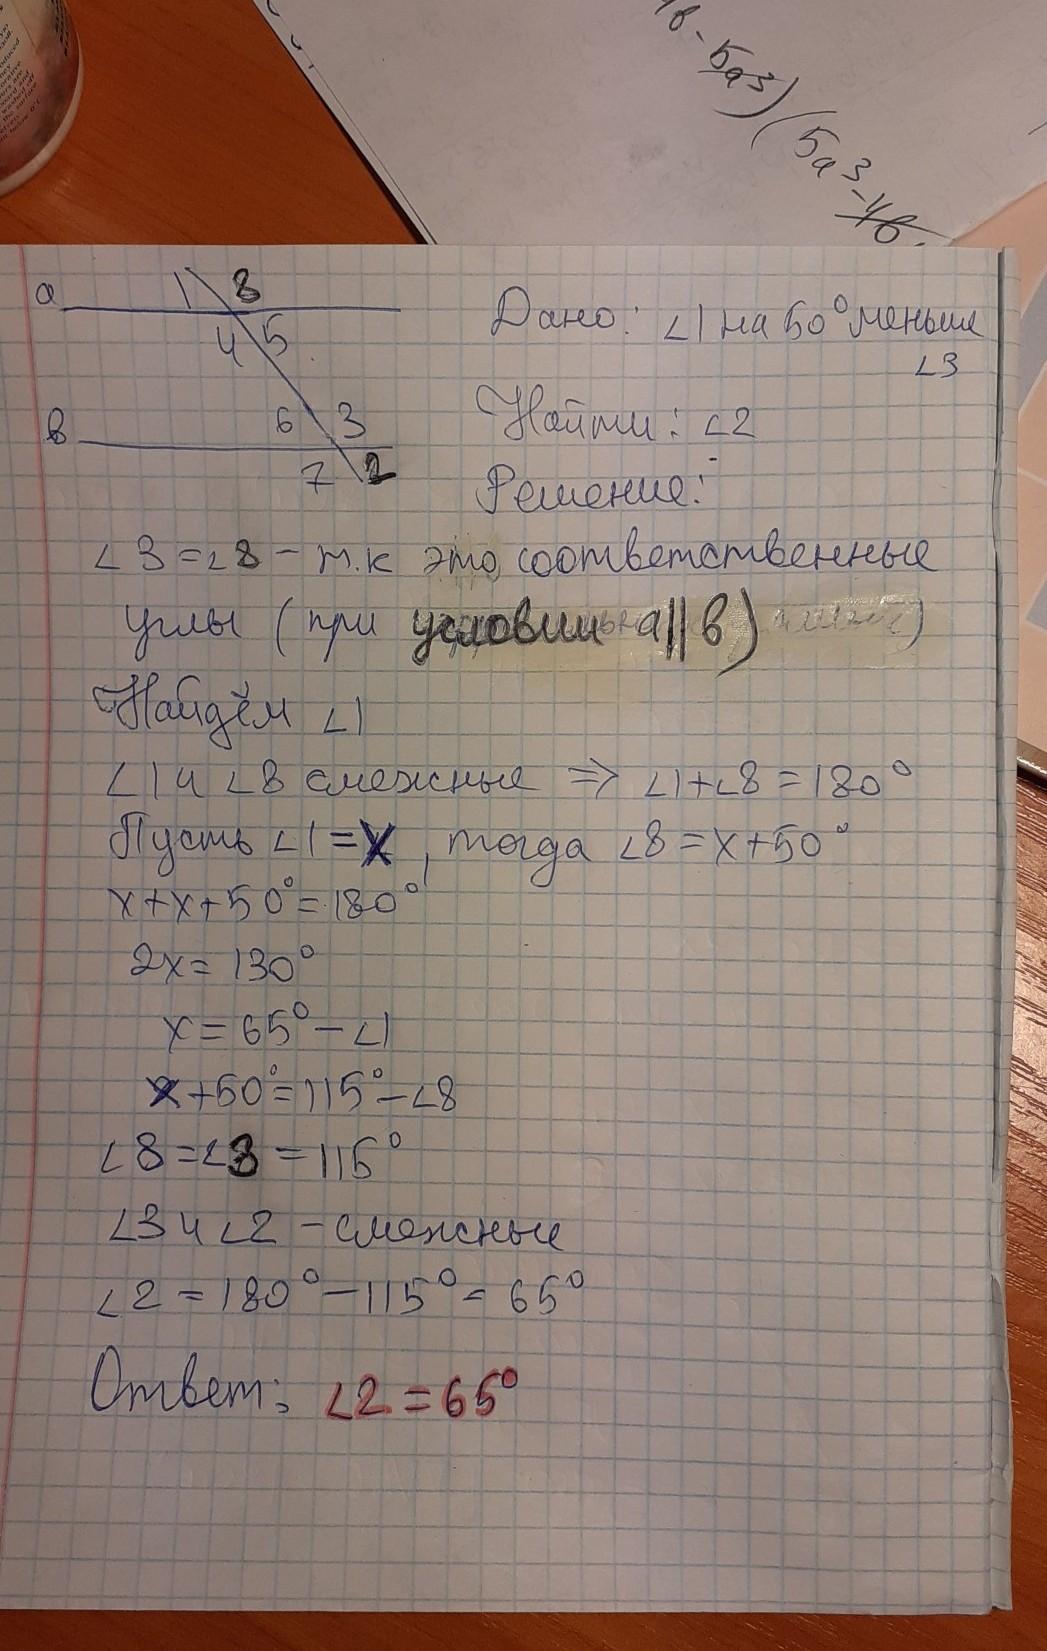 -5a³)(5a³-4в
а
1
8
4
5
в
6
3
7
2
Дано: ∠1 на 50° меньше
∠3
Найти: ∠2
Решение:
∠3 = ∠8 - т.к это соответственные
углы (при условии а||в)
Найдём ∠1
∠1 и ∠8 смежные ⇒ ∠1+∠8=180°
Пусть ∠1=х, тогда ∠8=х+50°
х+х+50°=180°
2х=130°
х=65°-∠1
х+50°=115°-∠8
∠8=∠3=115°
∠3 и ∠2 - смежные
∠2=180°-115°=65°
Ответ: ∠2=65°